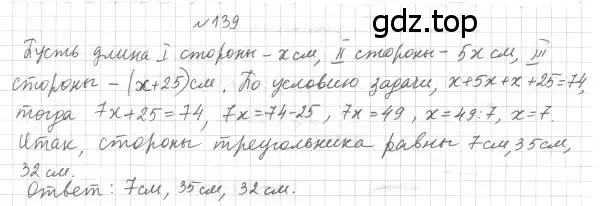 gdz.top
№139
Пусть длина I стороны - x см, II стороны - 5x см, III
стороны - (x+25)см. По условию задачи, x+5x+x+25=74,
тогда 7x+25=74, 7x=74-25, 7x=49, x=49:7, x=7.
Итак, стороны треугольника равны 7см, 35см,
32 см.
Ответ: 7см, 35 см, 32 см.